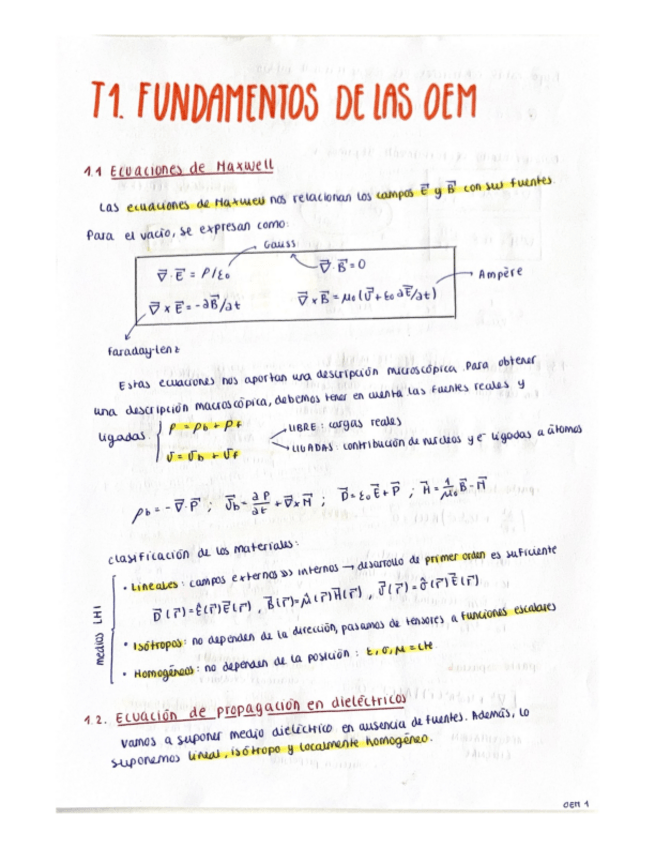 T1. FUNDAMENTOS DE LAS OEM
1.1 Ecuaciones de Maxwell
Las ecuaciones de Maxwell nos relacionan los campos E⃗ y B⃗ con sus fuentes.
Para el vacío, se expresan como:
Gauss
∇⃗·E⃗ = ρ/ε₀
∇⃗·B⃗ = 0
Ampère
∇⃗ x E⃗ = -∂B⃗/∂t
∇⃗ x B⃗ = μ₀(J⃗ + ε₀ ∂E⃗/∂t)
Faraday-Lenz
Estas ecuaciones nos aportan una descripción microscópica. Para obtener
una descripción macroscópica, debemos tener en cuenta las fuentes reales y
ligadas. { ρ = ρb + ρf
J⃗ = J⃗b + J⃗f
LIBRE: cargas reales
LIGADAS: contribución de núcleos y e⁻ ligados a átomos
ρb = -∇⃗·P⃗ ; J⃗b = ∂P⃗/∂t + ∇⃗xM⃗ ; D⃗ = ε₀E⃗ + P⃗ ; H⃗ = 1/μ₀ B⃗ - M⃗
Clasificación de los materiales:
medios LHI
• Lineales: campos externos >> internos → desarrollo de primer orden es suficiente
D⃗(r⃗) = ε̂(r⃗)E⃗(r⃗) , B⃗(r⃗) = μ̂(r⃗)H⃗(r⃗) , J⃗(r⃗) = σ̂(r⃗)E⃗(r⃗)
• Isótropos: no dependen de la dirección, pasamos de tensores a funciones escalares
• Homogéneos: no dependen de la posición: ε, σ, μ = cte.
1.2. Ecuación de propagación en dieléctricos
Vamos a suponer medio dieléctrico en ausencia de fuentes. Además, lo
suponemos lineal, isótropo y localmente homogéneo.
OEM 1